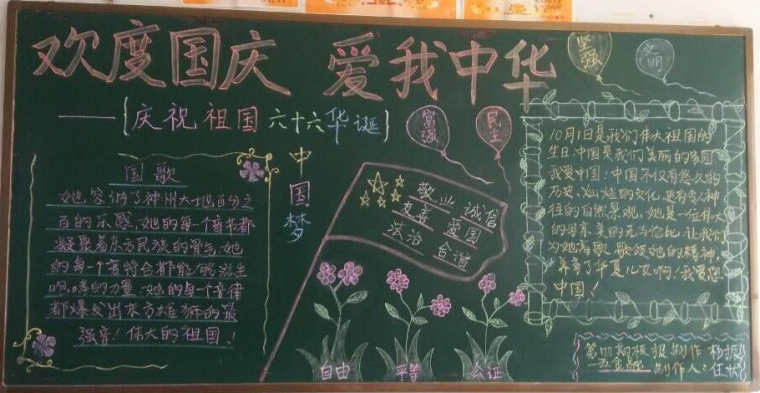 欢度国庆 爱我中华
——{庆祝祖国六十六华诞}
坚强
文明
富强
民主
中国梦
国歌
她容纳了神州大地百分之
百的乐感，她的每一个音节都
凝聚着东方民族的骨气，她
的每一个音符都能
的力量，她的每一个音律
都爆发出东方雄狮的最
强音！伟大的祖国！
敬业 诚信
友善 爱国
法治 合谐
自由
平等
公证
10月1日是我们伟大祖国的
生日，中国是我们美丽的家园
我爱中国：中国不仅有悠久的
历史，灿烂的文化，更有令人神
往的自然景观，她是一位伟大
的母亲，美的无与伦比，让我们
为她高歌，歌颂她的精神，
养育了华夏儿女啊！我爱您
中国！
板报制作
制作人：